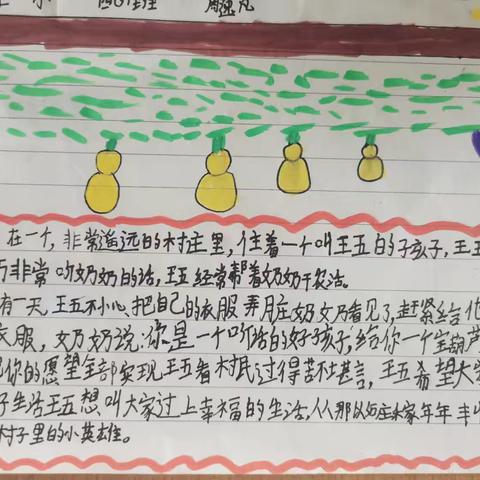 在一个,非常遥远的村庄里,住着一个叫王五的子孩子,王五
非常听奶奶的话,王五经常帮着奶奶干农活。
有一天,王五不小心,把自己的衣服弄脏奶奶看见了,赶紧给他
衣服,奶奶说:你是一个听话的好子孩子,给你一个宝葫芦
你的愿望全部实现王五看村民过得苦不甚言,王五希望大家
子生活王五想叫大家过上幸福的生活,从那以后庄家年年丰
村子里的小英雄。